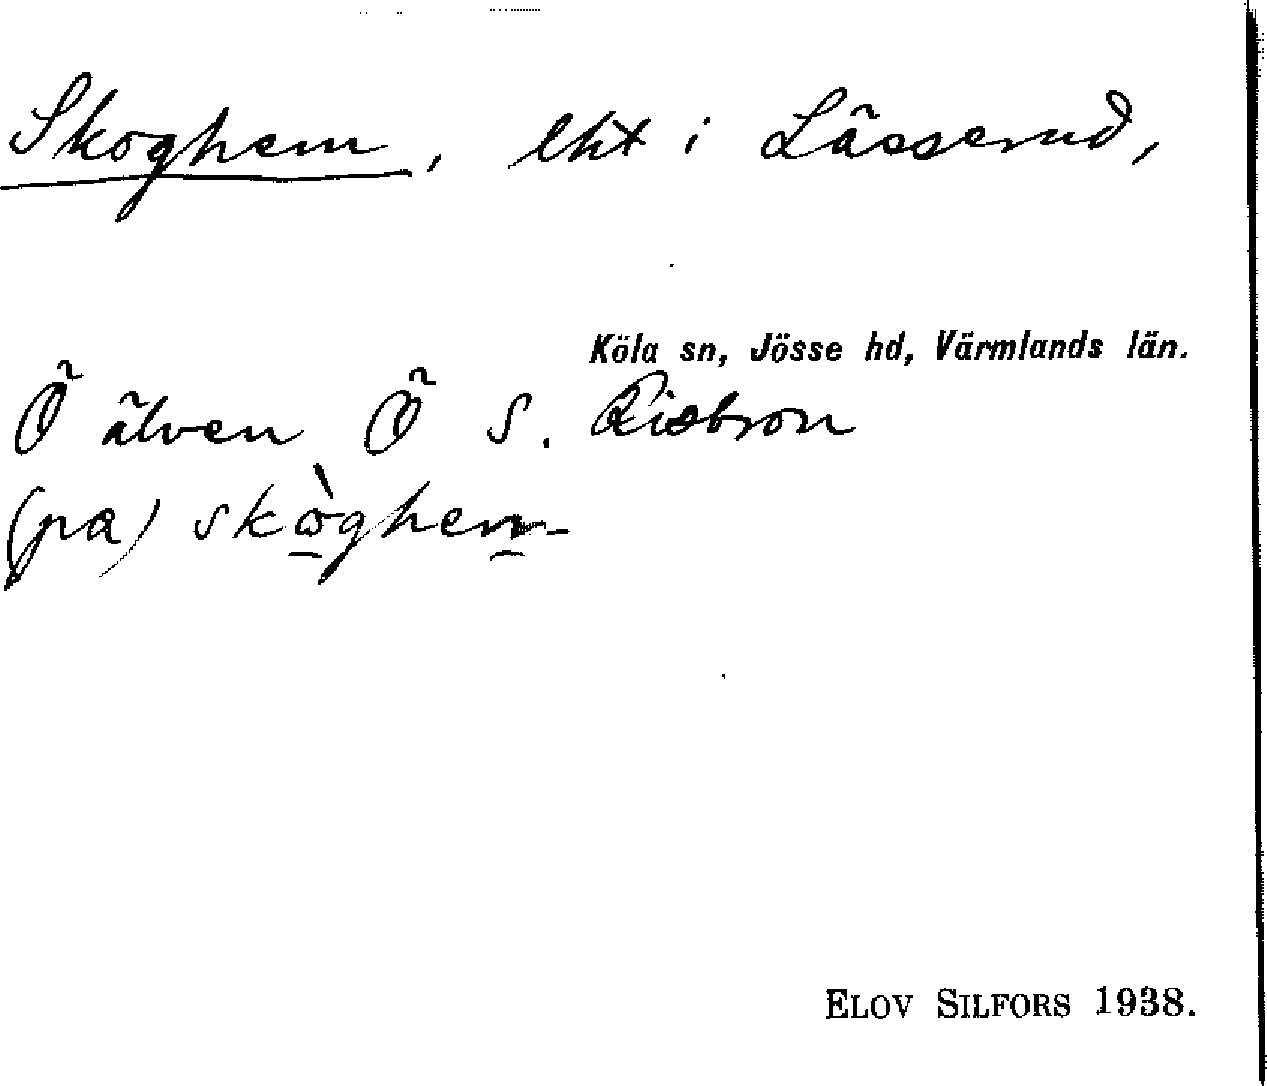 Skoghem, lht i Lässerud,
Köla sn, Jösse hd, Värmlands län.
Ö älven Ö S. Risbron
(pa) skòghem-
ELOV SILFORS 1938.